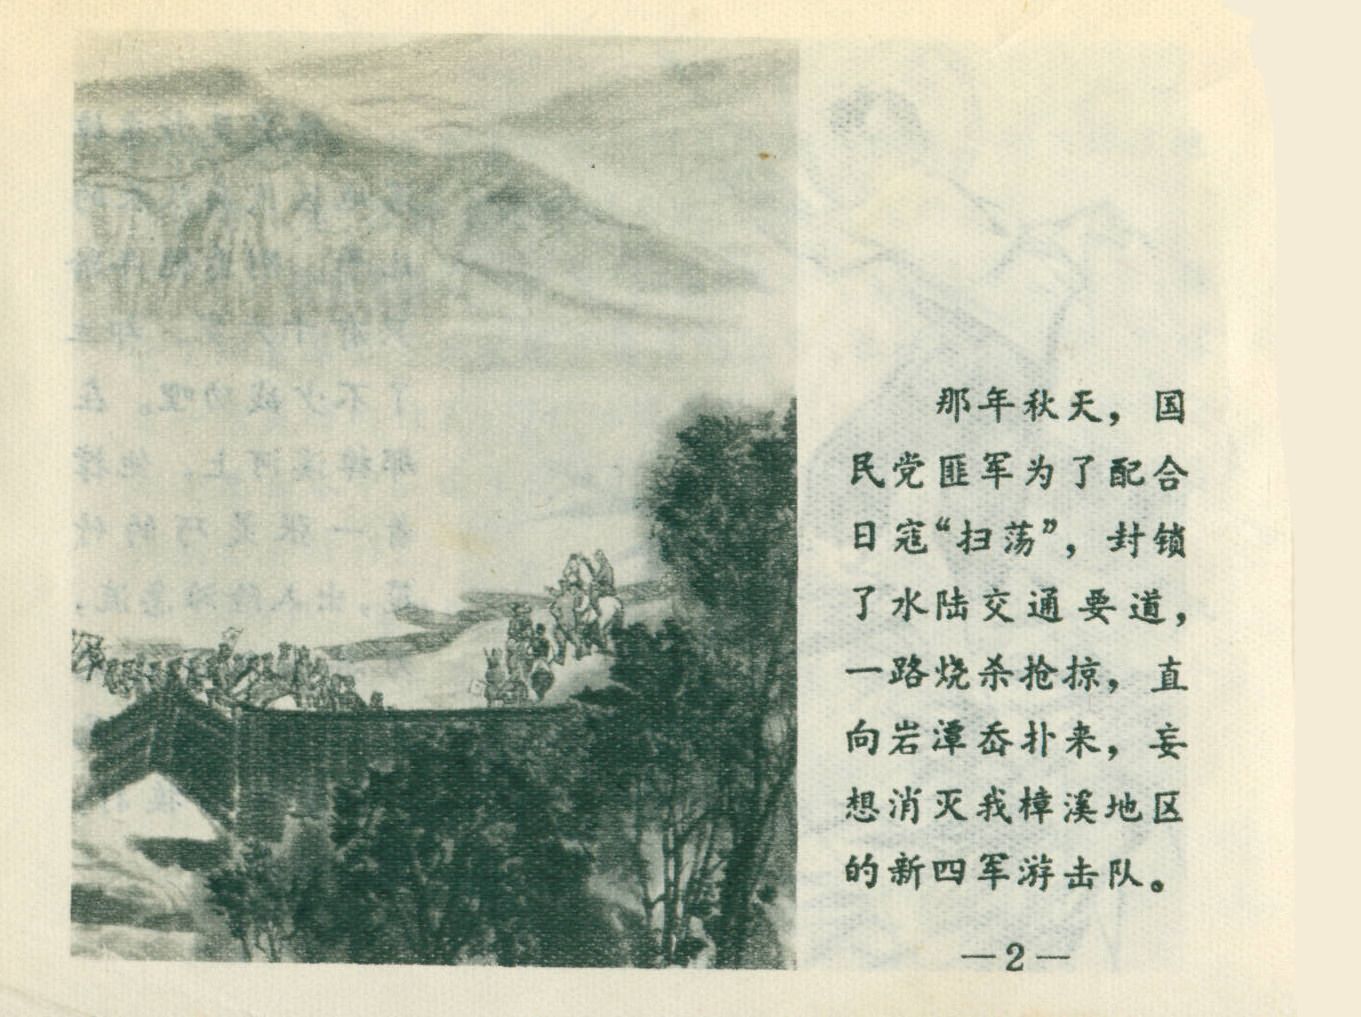 那年秋天，国
民党匪军为了配合
日寇“扫荡”，封锁
了水陆交通要道，
一路烧杀抢掠，直
向岩潭岙扑来，妄
想消灭我樟溪地区
的新四军游击队。
—2—